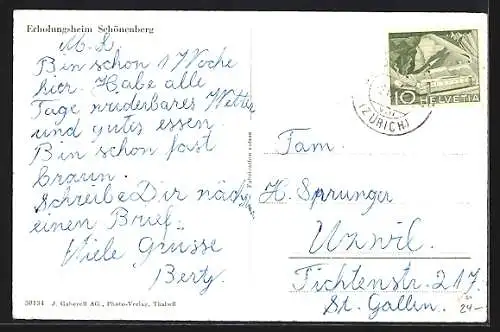 Erholungsheim Schönenberg
M. L.
Bin schon 1 Woche
hier. Habe alle
Tage wuderbares Wetter
und gutes essen
Bin schon fast
braun.
Schreibe Dir näch
einen Brief.
Viele Grüsse
Berty.
50134 J. Gaberell AG., Photo-Verlag, Thalwil
Fabrication suisse
10 HELVETIA
(ZÜRICH)
Fam.
H. Sprunger
Uzwil.
Fichtenstr. 217.
St. Gallen.
24-